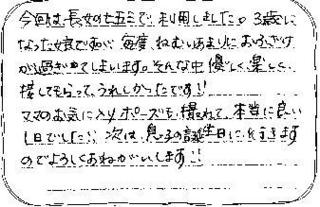 今回は、長女の七五三で、利用しました。3歳に
なった娘で、毎度、ねむいあまりにおふざけ
が過ぎてしまいます。そんな中優しく楽しく
接してもらって、うれしかったです!!
ママのお気に入りポーズも撮れて、本当に良い
1日でした!! 次は、息子の誕生日に、行きます
のでよろしくおねがいします!!